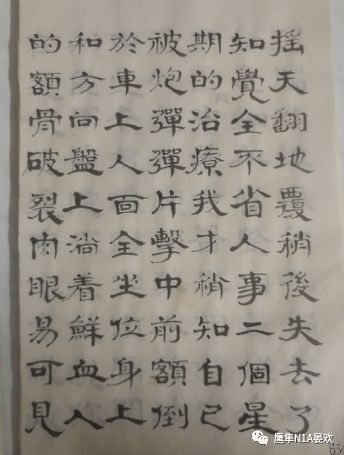 搖天翻地覆稍後失去了
知覺全不省人事二個星
期的治療我才稍知自己
被炮彈彈片擊中前額倒
於車上人面全坐位身上
和方向盤上淌着鮮血人
的額骨破裂肉眼易可見
634
鹰隼NIA晏欢